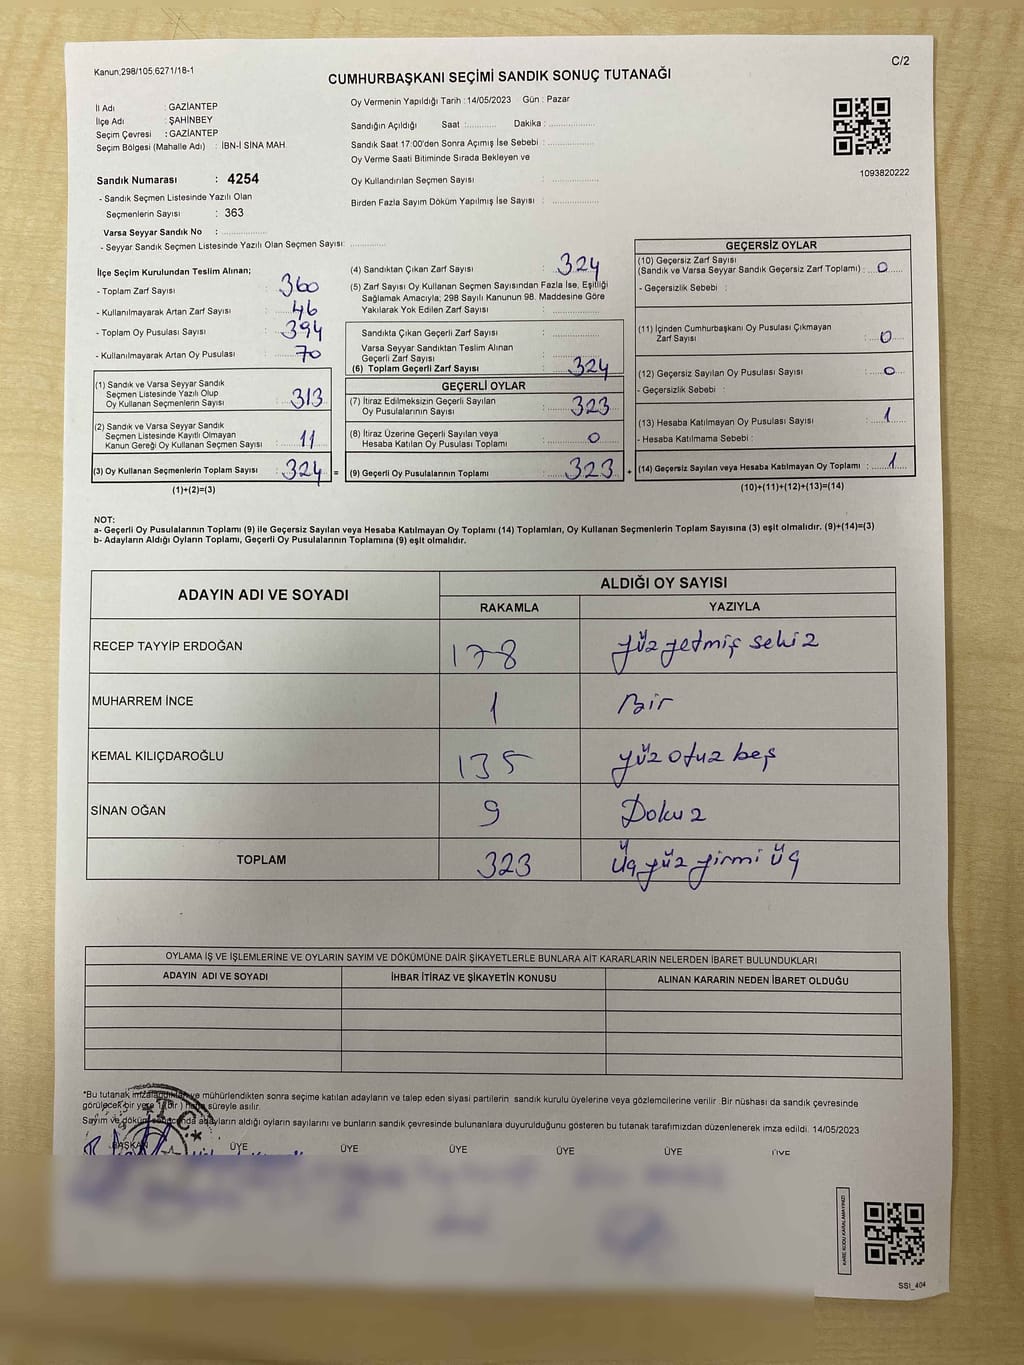 Kanun;298/105;6271/18-1
C/2
CUMHURBAŞKANI SEÇİMİ SANDIK SONUÇ TUTANAĞI
İl Adı : GAZİANTEP
İlçe Adı : ŞAHİNBEY
Seçim Çevresi : GAZİANTEP
Seçim Bölgesi (Mahalle Adı) : İBN-İ SİNA MAH.
Oy Vermenin Yapıldığı Tarih : 14/05/2023 Gün : Pazar
Sandığın Açıldığı Saat :........... Dakika :................
Sandık Saat 17:00'den Sonra Açımış İse Sebebi :................
Oy Verme Saati Bitiminde Sırada Bekleyen ve
Oy Kullandırılan Seçmen Sayısı :................
Birden Fazla Sayım Döküm Yapılmış İse Sayısı :................
1093820222
Sandık Numarası : 4254
- Sandık Seçmen Listesinde Yazılı Olan
Seçmenlerin Sayısı : 363
Varsa Seyyar Sandık No :................
- Seyyar Sandık Seçmen Listesinde Yazılı Olan Seçmen Sayısı:............
İlçe Seçim Kurulundan Teslim Alınan;
- Toplam Zarf Sayısı : 360
- Kullanılmayarak Artan Zarf Sayısı : 46
- Toplam Oy Pusulası Sayısı : 394
- Kullanılmayarak Artan Oy Pusulası : 70
(1) Sandık ve Varsa Seyyar Sandık
Seçmen Listesinde Yazılı Olup
Oy Kullanan Seçmenlerin Sayısı : 313
(2) Sandık ve Varsa Seyyar Sandık
Seçmen Listesinde Kayıtlı Olmayan
Kanun Gereği Oy Kullanan Seçmen Sayısı : 11
(3) Oy Kullanan Seçmenlerin Toplam Sayısı : 324 =
(1)+(2)=(3)
(4) Sandıktan Çıkan Zarf Sayısı : 324
(5) Zarf Sayısı Oy Kullanan Seçmen Sayısından Fazla İse, Eşitliği
Sağlamak Amacıyla; 298 Sayılı Kanunun 98. Maddesine Göre
Yakılarak Yok Edilen Zarf Sayısı :................
Sandıkta Çıkan Geçerli Zarf Sayısı :................
Varsa Seyyar Sandıktan Teslim Alınan
Geçerli Zarf Sayısı :................
(6) Toplam Geçerli Zarf Sayısı : 324
GEÇERLİ OYLAR
(7) İtiraz Edilmeksizin Geçerli Sayılan
Oy Pusulalarının Sayısı : 323
(8) İtiraz Üzerine Geçerli Sayılan veya
Hesaba Katılan Oy Pusulası Toplamı : 0
(9) Geçerli Oy Pusulalarının Toplamı : 323 +
GEÇERSİZ OYLAR
(10) Geçersiz Zarf Sayısı
(Sandık ve Varsa Seyyar Sandık Geçersiz Zarf Toplamı) : 0
- Geçersizlik Sebebi :
(11) İçinden Cumhurbaşkanı Oy Pusulası Çıkmayan
Zarf Sayısı : 0
(12) Geçersiz Sayılan Oy Pusulası Sayısı : 0
- Geçersizlik Sebebi :
(13) Hesaba Katılmayan Oy Sayısı : 1
- Hesaba Katılmama Sebebi :
(14) Geçersiz Sayılan veya Hesaba Katılmayan Oy Toplamı : 1
(10)+(11)+(12)+(13)=(14)
NOT:
a- Geçerli Oy Pusulalarının Toplamı (9) ile Geçersiz Sayılan veya Hesaba Katılmayan Oy Toplamı (14) Toplamları, Oy Kullanan Seçmenlerin Toplam Sayısına (3) eşit olmalıdır. (9)+(14)=(3)
b- Adayların Aldığı Oyların Toplamı, Geçerli Oy Pusulalarının Toplamına (9) eşit olmalıdır.
ADAYIN ADI VE SOYADI
ALDIĞI OY SAYISI
RAKAMLA YAZIYLA
RECEP TAYYİP ERDOĞAN 178 yüz yetmiş sekiz
MUHARREM İNCE 1 Bir
KEMAL KILIÇDAROĞLU 135 yüz otuz beş
SİNAN OĞAN 9 Dokuz
TOPLAM 323 Üç yüz yirmi üç
OYLAMA İŞ VE İŞLEMLERİNE VE OYLARIN SAYIM VE DÖKÜMÜNE DAİR ŞİKAYETLERLE BUNLARA AİT KARARLARIN NELERDEN İBARET BULUNDUKLARI
ADAYIN ADI VE SOYADI İHBAR İTİRAZ VE ŞİKAYETİN KONUSU ALINAN KARARIN NEDEN İBARET OLDUĞU
*Bu tutanak imzalandıktan ve mühürlendikten sonra seçime katılan adayların ve talep eden siyasi partilerin sandık kurulu üyelerine veya gözlemcilerine verilir .Bir nüshası da sandık çevresinde
görülecek bir yere 1 (Bir ) hafta süreyle asılır.
Sayım ve döküm sonucunda adayların aldığı oyların sayılarını ve bunların sandık çevresinde bulunanlara duyurulduğunu gösteren bu tutanak tarafımızdan düzenlenerek imza edildi. 14/05/2023
BAŞKAN ÜYE ÜYE ÜYE ÜYE ÜYE ÜYE
T.C.
KARE KODU KARALAMAYINIZ!
SSİ_404